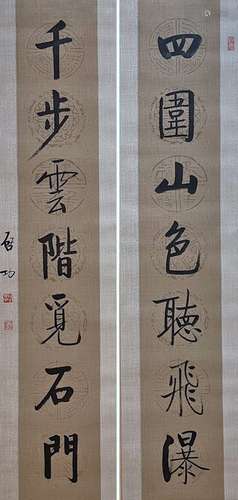 四圍山色聽飛瀑
千步雲階覓石門
啟功